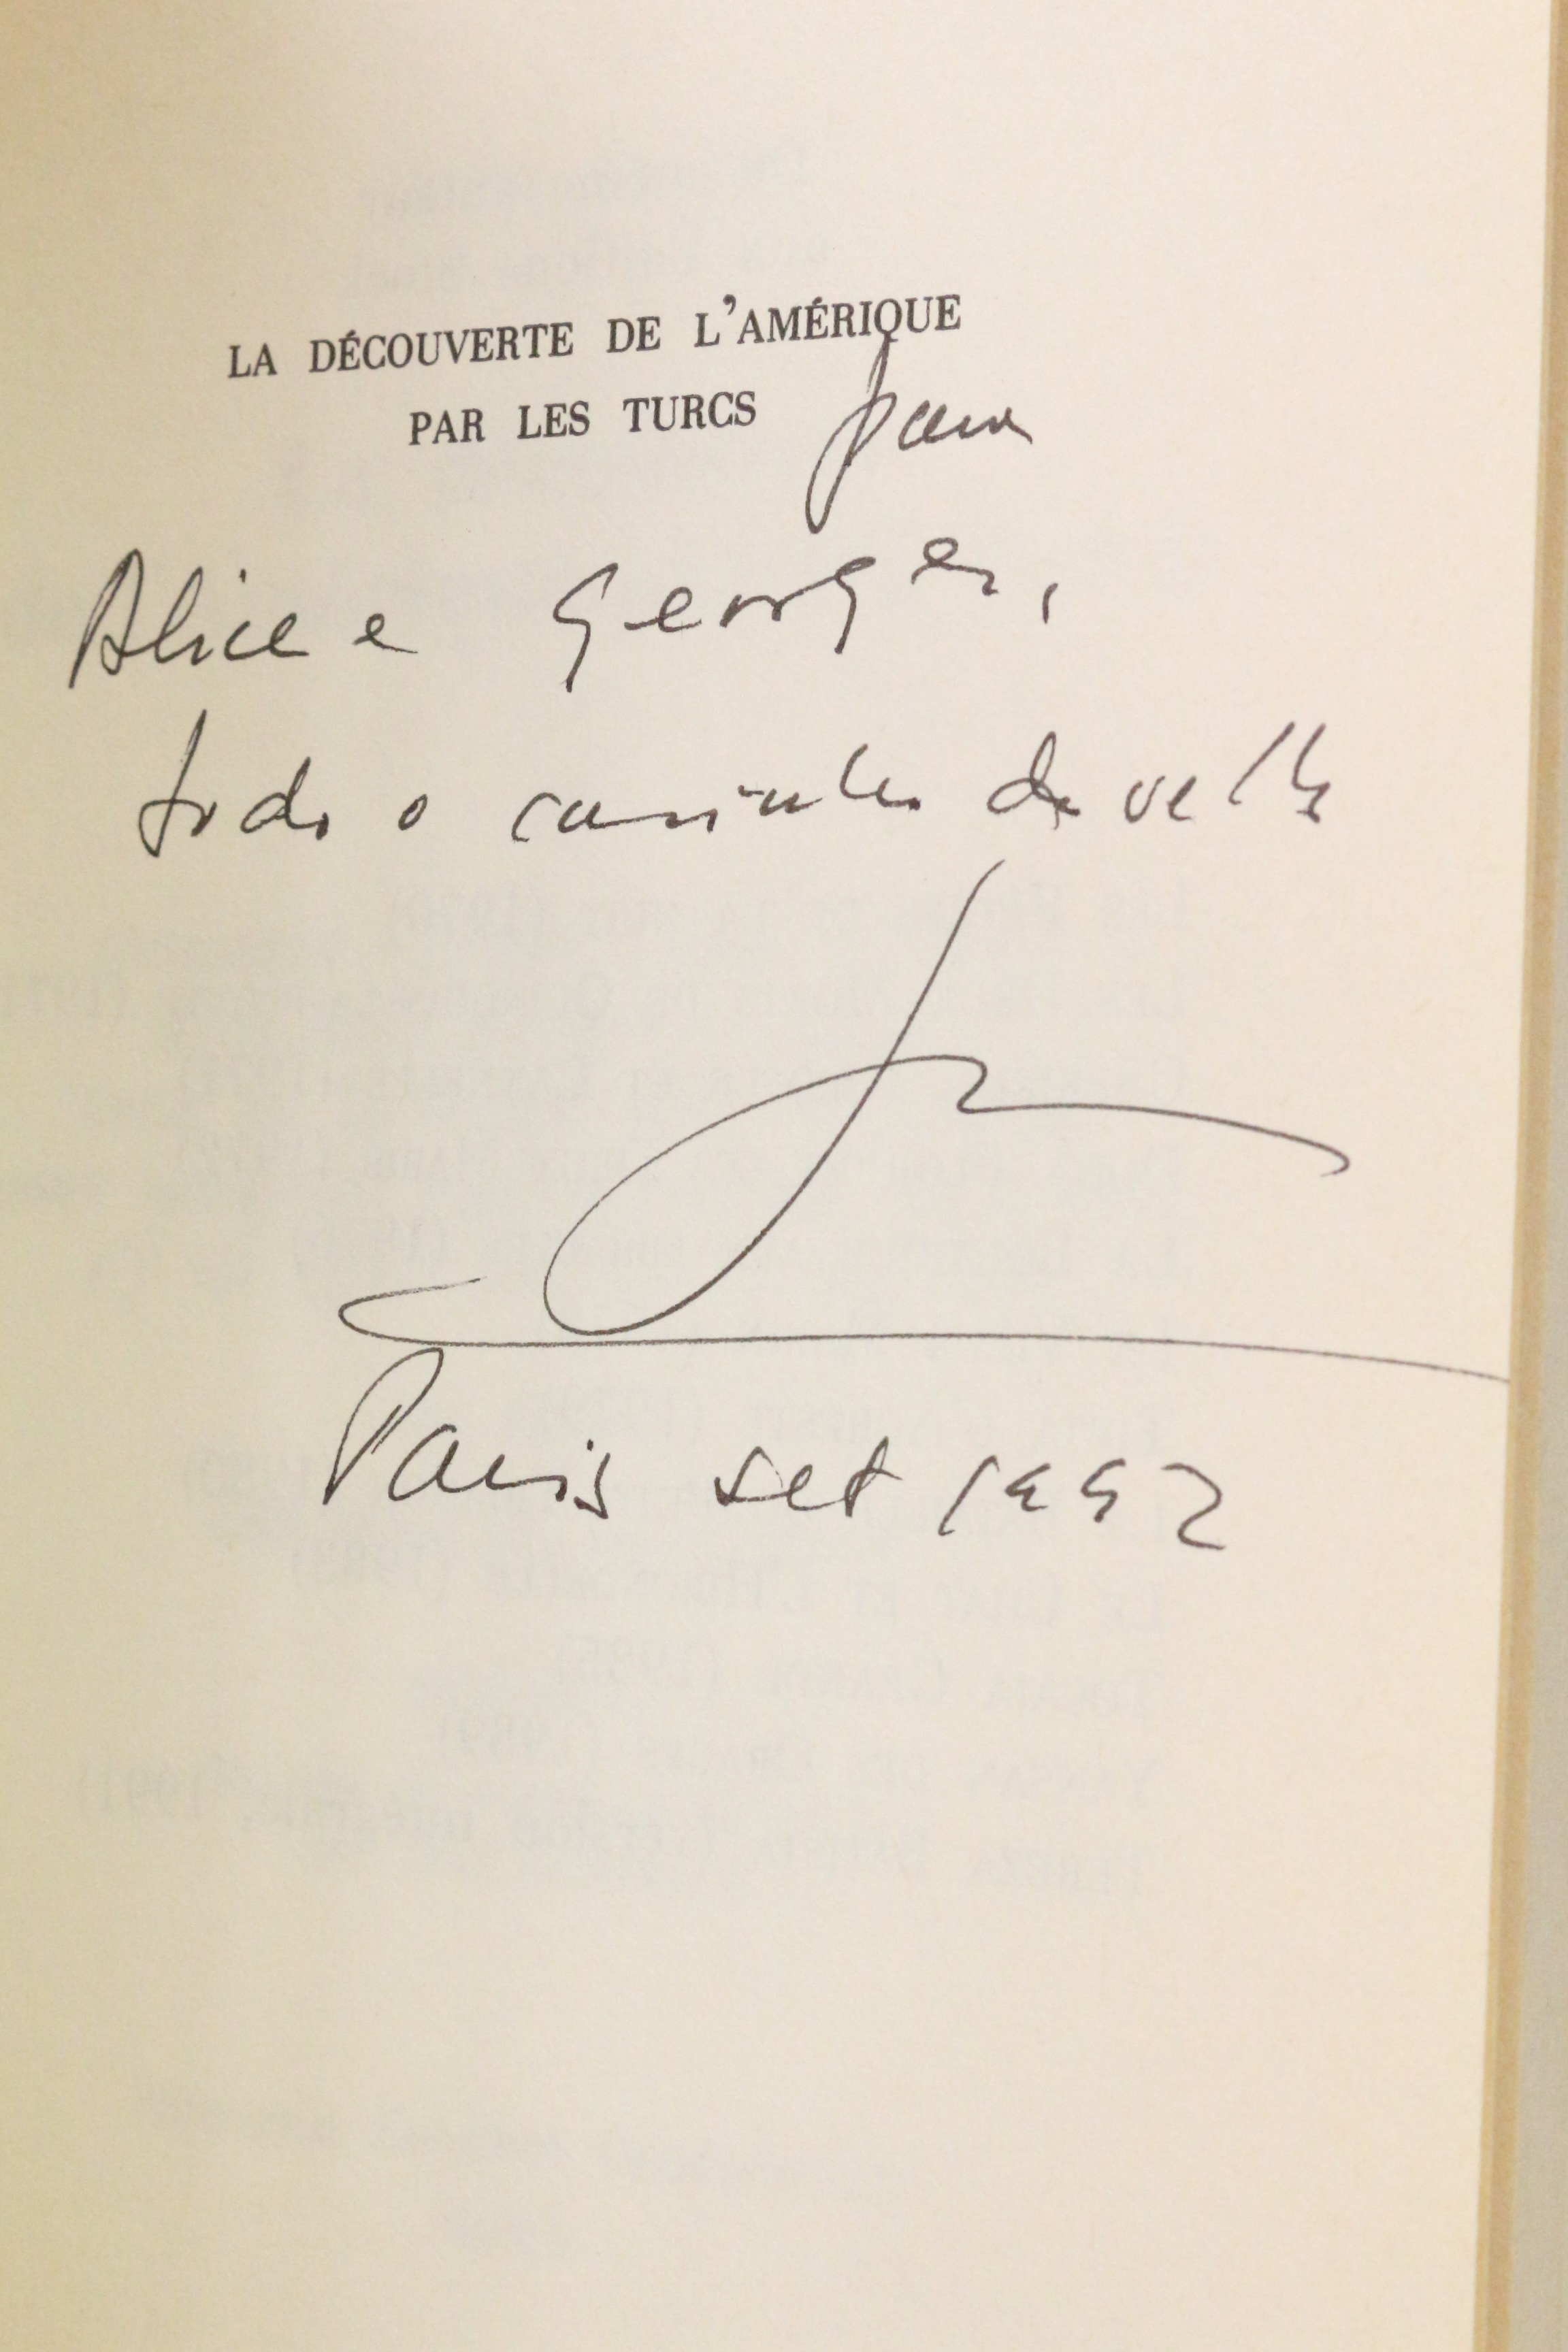 LA DÉCOUVERTE DE L'AMÉRIQUE
PAR LES TURCS
para
Alice e Georges,
todo o carinho do velho
Paris set 1992